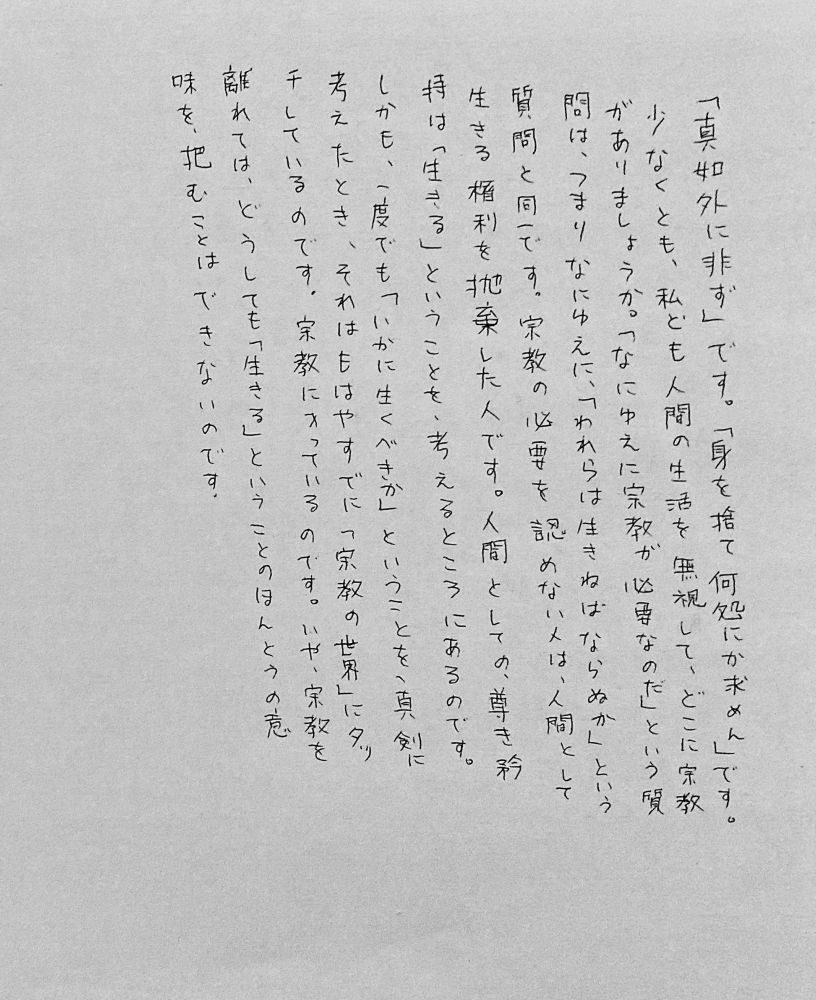 「真如外に非ず」です。「身を捨て何処にか求めん」です。
少なくとも、私ども人間の生活を無視して、どこに宗教
がありましょうか。「なにゆえに宗教が必要なのだ」という質
問は、つまりなにゆえに、「われらは生きねばならぬか」という
質問と同一です。宗教の必要を認めない人は、人間として
生きる権利を抛棄した人です。人間としての、尊き矜
持は「生きる」ということを、考えるところにあるのです。
しかも、一度でも「いかに生くべきか」ということを、真剣に
考えたとき、それはもはやすでに「宗教の世界」にタッ
チしているのです。宗教に入っているのです。いや、宗教を
離れては、どうしても「生きる」ということのほんとうの意
味を、把むことはできないのです。